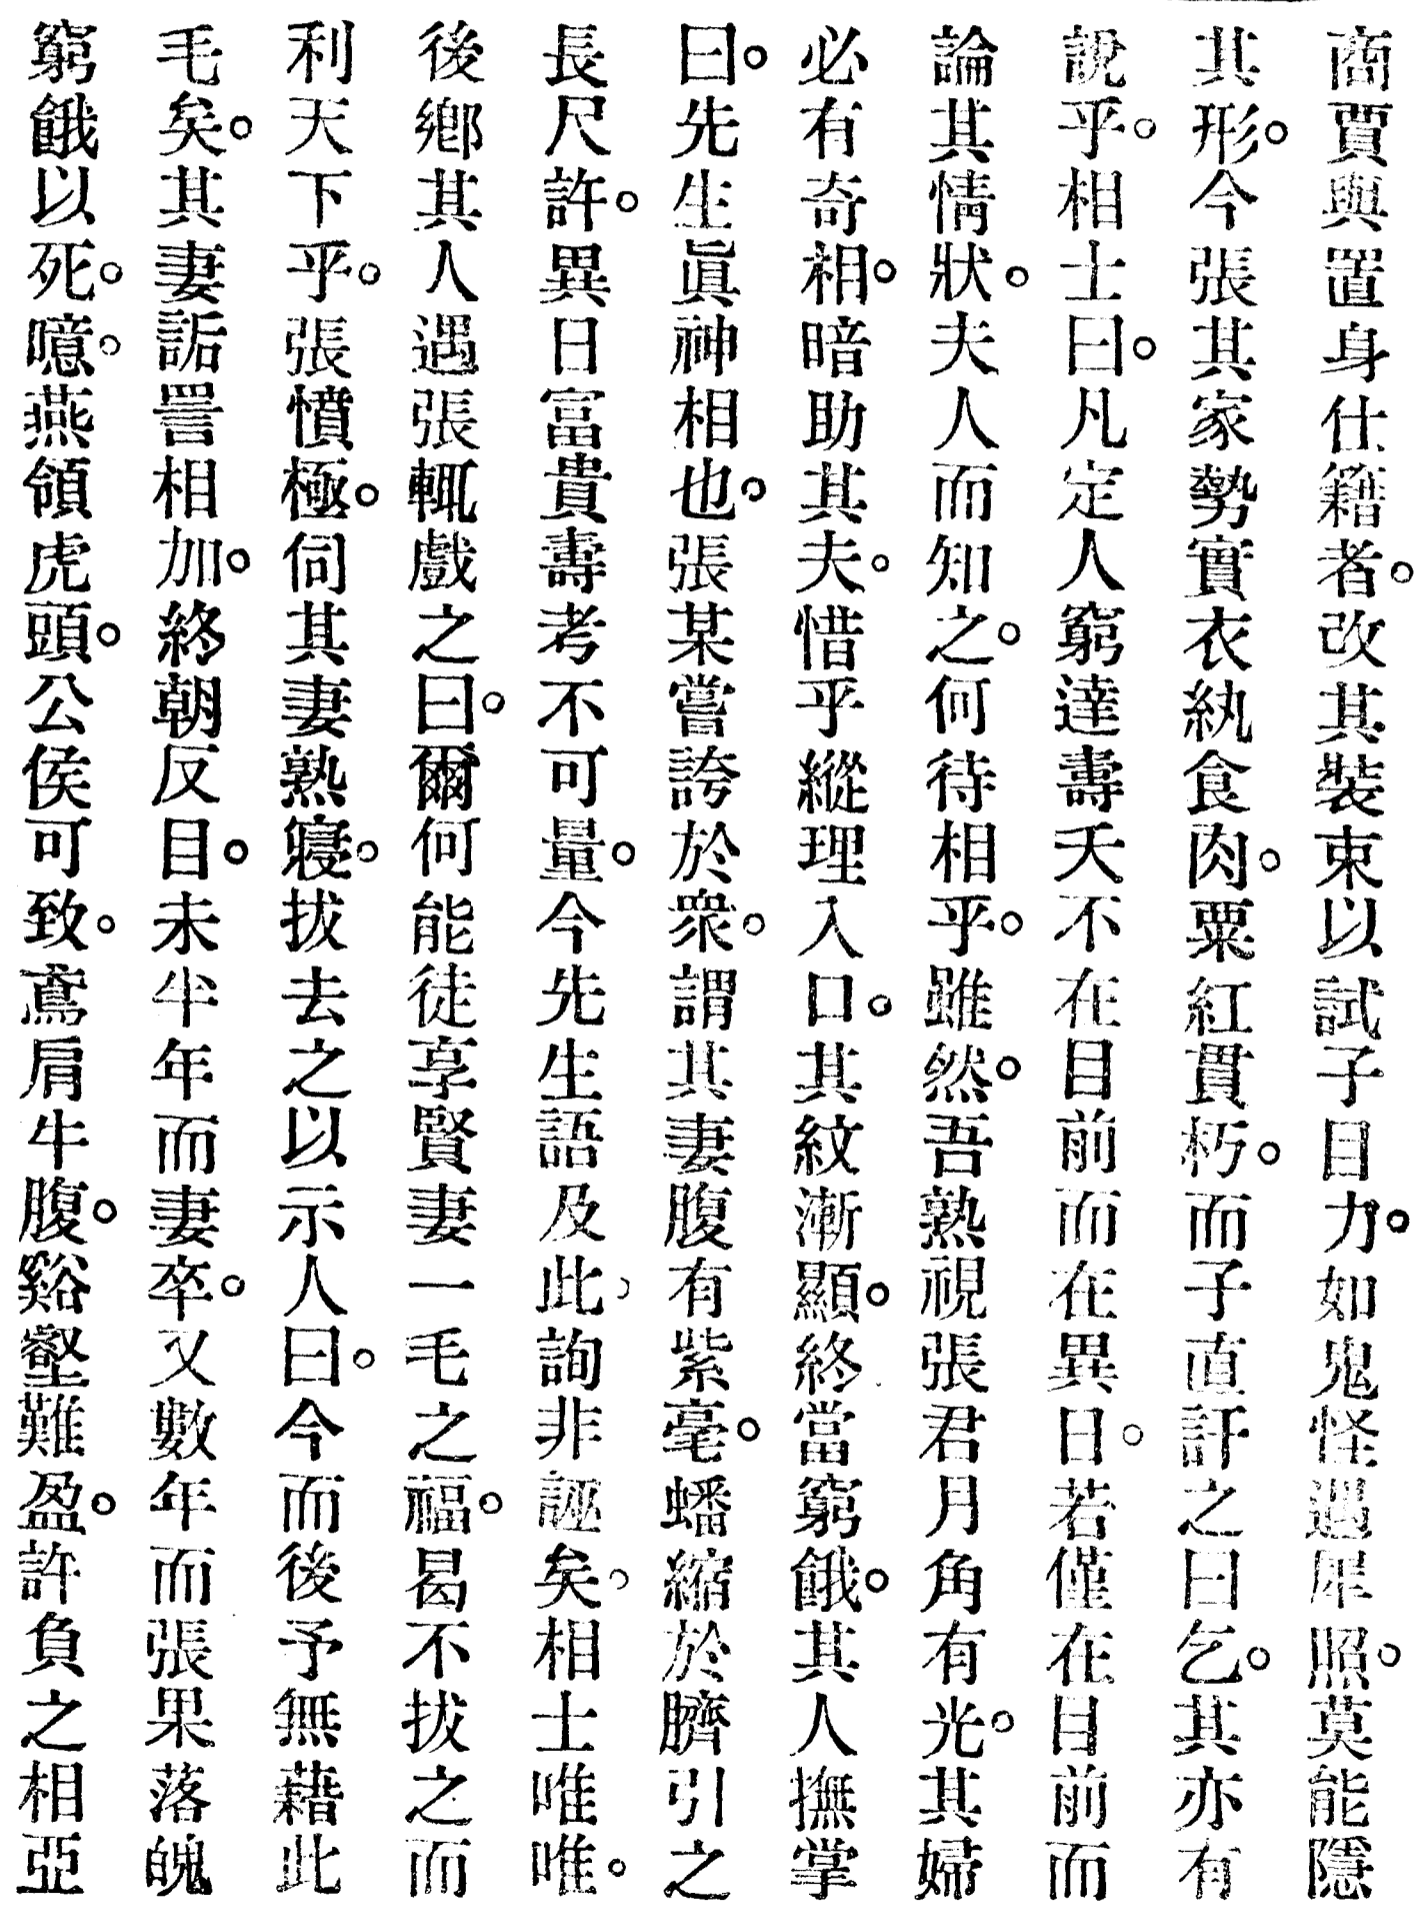 商賈與置身仕籍者。改其裝束以試子目力。如鬼怪遇犀照。莫能隱
其形。今張其家勢實衣紈食肉。粟紅貫朽。而子直訐之曰乞。其亦有
說乎。相士曰。凡定人窮達壽夭不在目前而在異日。若僅在目前而
論其情狀。夫人而知之。何待相乎。雖然。吾熟視張君月角有光。其婦
必有奇相。暗助其夫。惜乎縱理入口。其紋漸顯。終當窮餓。其人撫掌
曰。先生眞神相也。張某嘗誇於衆。謂其妻腹有紫毫。蟠縮於臍引之
長尺許。異日富貴壽考不可量。今先生語及此。詢非誣矣。相士唯唯。
後鄉其人遇張輒戲之曰。爾何能徒享賢妻一毛之福。曷不拔之而
利天下乎。張憤極。伺其妻熟寢。拔去之以示人曰。今而後予無藉此
毛矣。其妻詬詈相加。終朝反目。未半年而妻卒。又數年而張果落魄
窮餓以死。噫。燕頷虎頭。公侯可致。鳶肩牛腹。谿壑難盈。許負之相亞